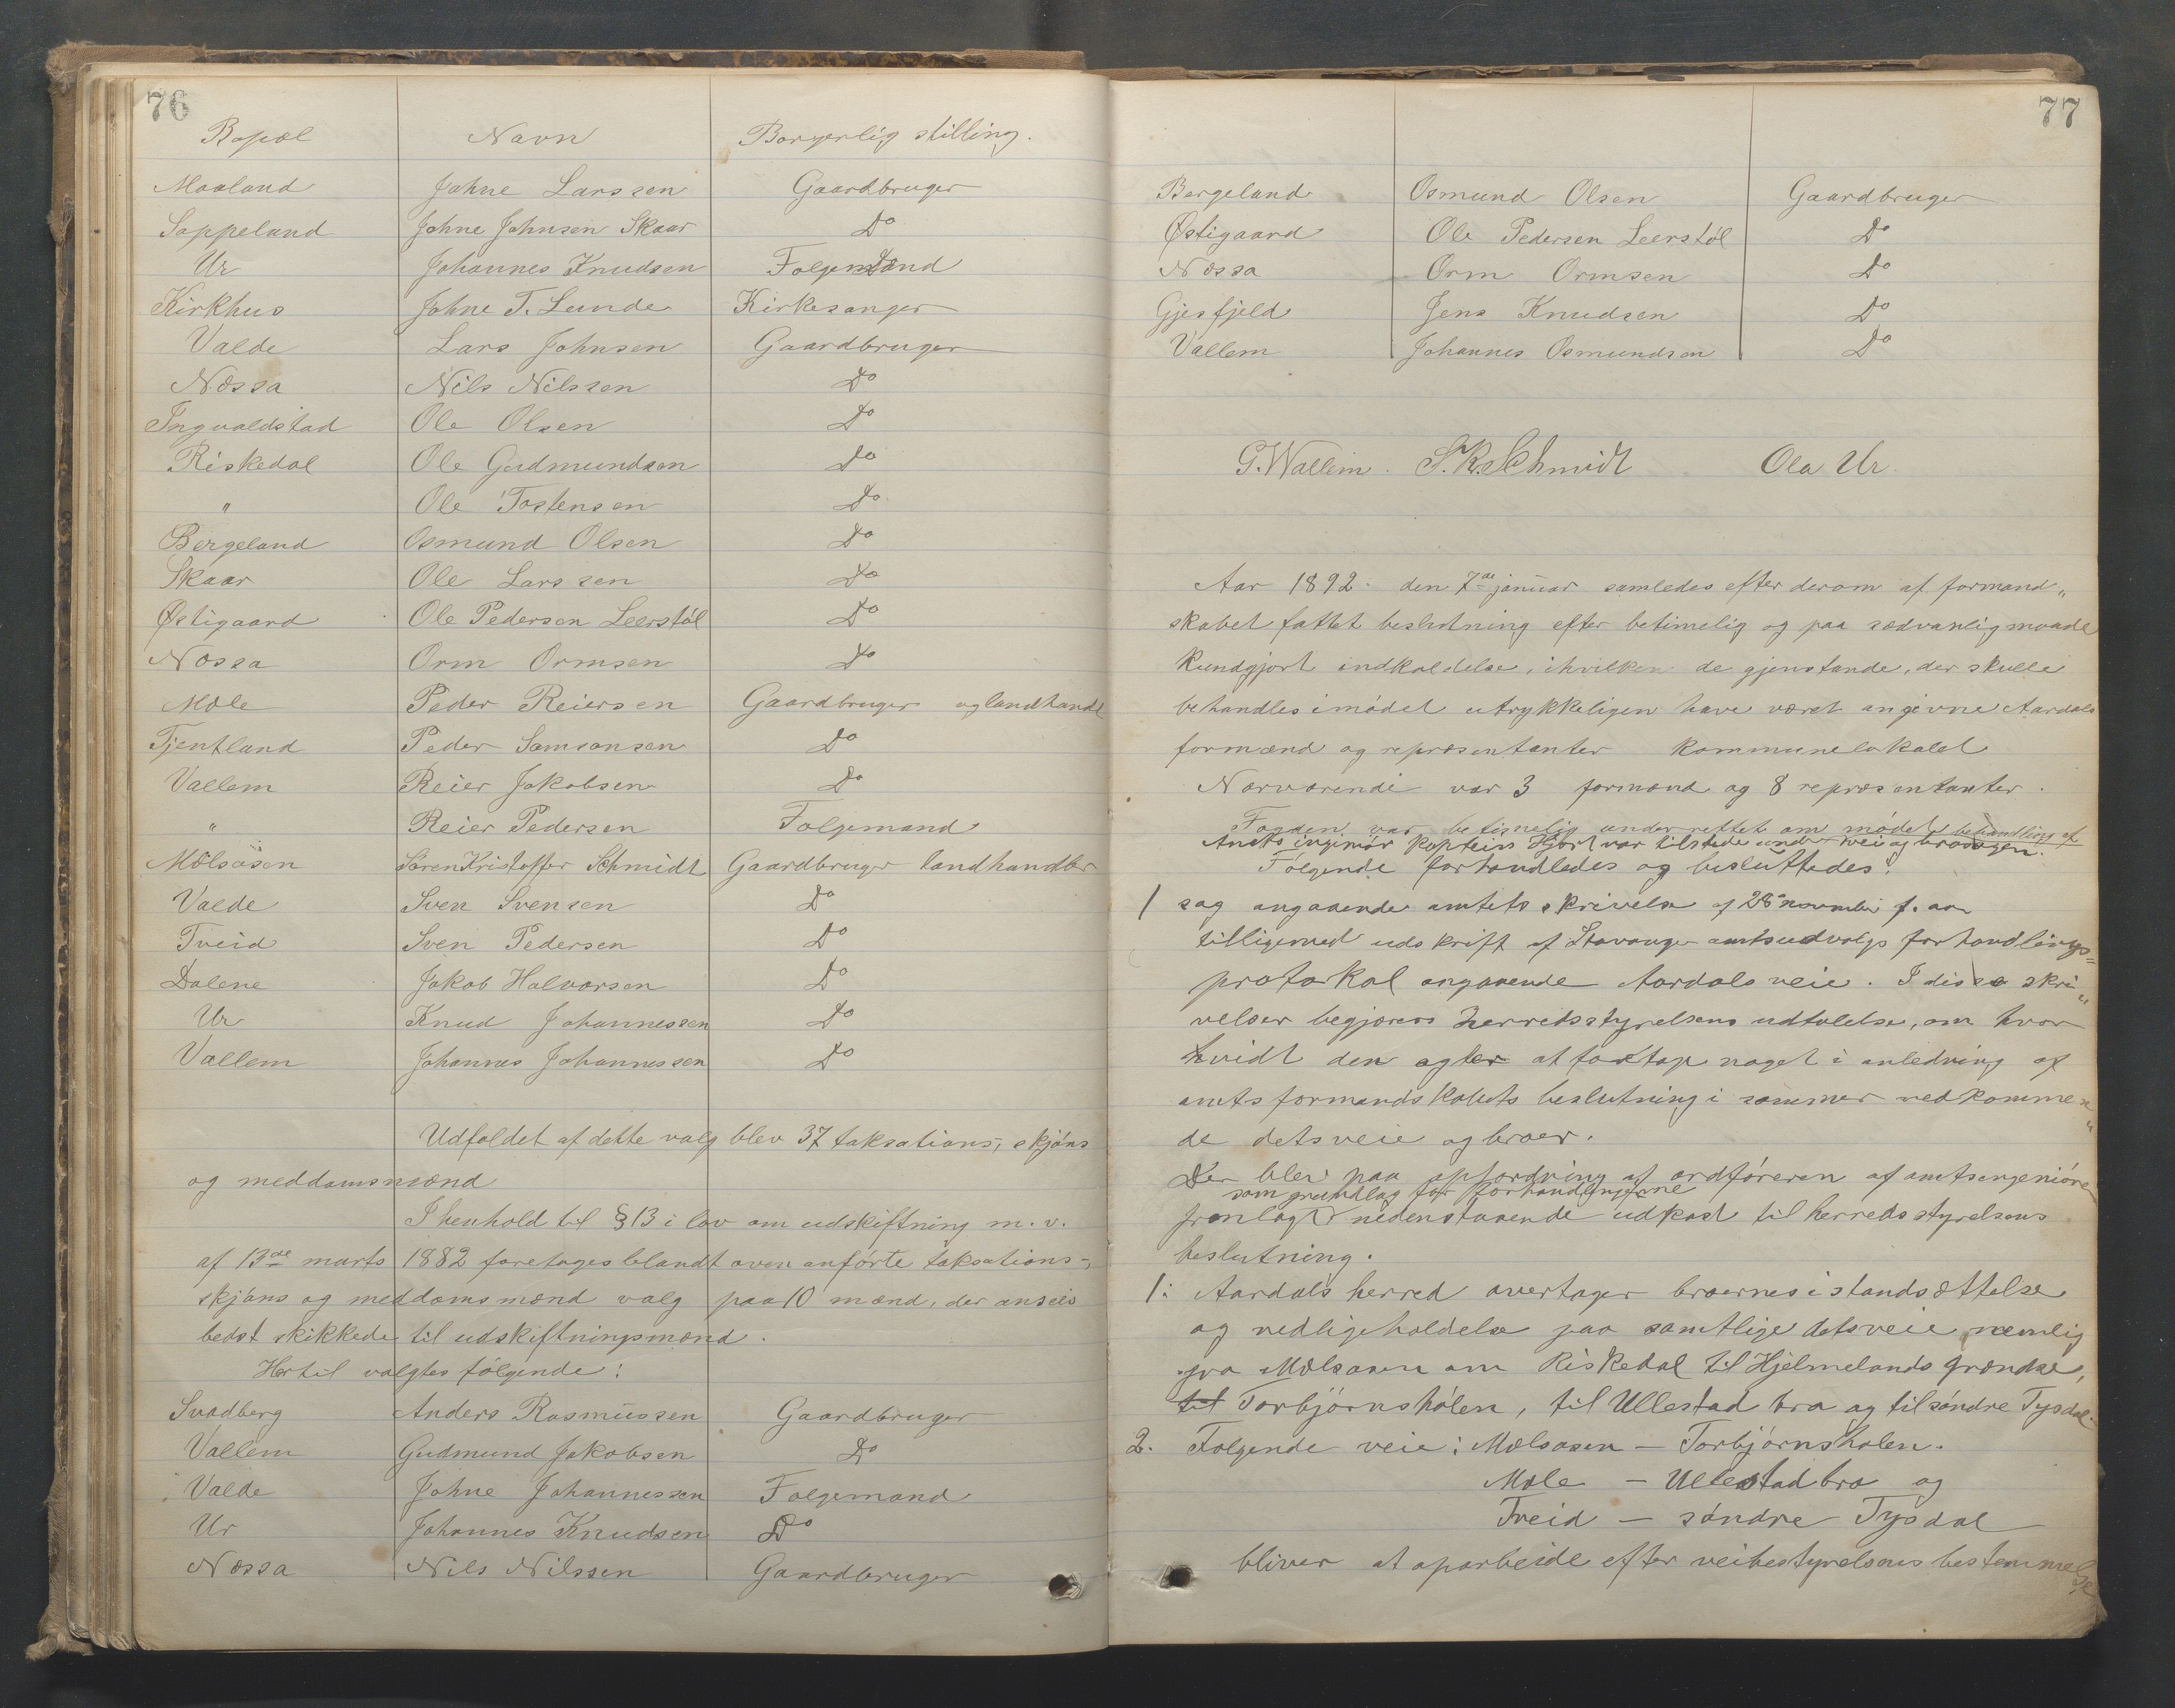 76
Bopæl Navn Borgerlig stilling.
Maaland Jahne Larssen Gaardbruger
Soppeland Jahne Johnsen Skaar Do
Ur Johannes Knudsen Folgemand
Kirkhus Jahne T. Lunde Kirkesanger
Valde Lars Johnsen Gaardbruger
Nøssa Nils Nilssen Do
Ingvaldstad Ole Olsen Do
Riskedal Ole Gudmundsen Do
" Ole Tostensen Do
Bergeland Osmund Olsen Do
Skaar Ole Larssen Do
Østigaard Ole Pedersen Leerstöl Do
Nøssa Orm Ormsen Do
Mæle Peder Reiersen Gaardbruger og landhandl
Tjentland Peder Samsonsen Do
Vallem Reier Jakobsen Do
" Reier Pedersen Folgemand
Mölsosen Sören Kristoffer Schmidt Gaardbruger landhandler
Valde Sven Svensen Do
Tveid Sven Pedersen Do
Dalene Jakob Halvorsen Do
Ur Knud Johannessen Do
Vallem Johannes Johannessen Do
Udfaldet af dette valg blev 37 taksations-, skjöns
og meddomsmænd
I henhold til § 13 i lov om udskiftning m. v.
af 13de marts 1882 foretoges blandt oven anförte taksations-,
skjöns og meddomsmænd valg paa 10 mænd, der ansees
bedst skikkede til udskiftningsmænd.
Hertil valgtes fölgende:
Svadberg Anders Rasmussen Gaardbruger
Vallem Gudmund Jakobsen Do
Valde Jahne Johannessen Folgemand
Ur Johannes Knudsen Do
Nøssa Nils Nilssen Gaardbruger
77
Bergeland Osmund Olsen Gaardbruger
Østigaard Ole Pedersen Leerstöl Do
Nøssa Orm Ormsen Do
Gjesfjeld Jens Knudsen Do
Vallem Johannes Osmundsen Do
G. Wallem. S. K. Schmidt Ola Ur.
Aar 1892 den 7de januar samledes efter derom af formand„
skabet fattet beslutning efter betimelig og paa sædvanlig maade
kundgjort indkaldelse, i hvilken de gjenstande, der skulle
behandles i mödet utrykkeligen have været angivne Aardals
formænd og repræsentanter kommunelokalet
Nærværende var 3 formænd og 8 repræsentanter.
Fogden var betimelig underrettet om mödet behandling af
Amts ingeniör Kaptein Hjort var tilstede under vei og brosagen.
Fölgende forhandledes og besluttedes:
1 sag angaaende amtets skrivelse af 28 november f. aar
tilligemed udskrift af Stavanger amtsudvalgs forhandlings=
protokol angaaende Aardals veie. I disse skri„
velser begjæres herredsstyrelsens udtalelse, om hvor
hvidt den agter at foretage noget i anledning af
amtsformandskabets beslutning i sommer vedkommen„
de detsveie og broer.
Der blev paa opfordring af ordföreren af amtsingeniören
som grundlag for forhandlingerne
fremlagt nedenstaaende udkast til herredsstyrelsens
beslutning.
1: Aardals herred overtager broernes istandsættelse
og vedligeholdelse paa samtlige detsveie nemlig
fra Mælsosen om Riskedal til Hjelmelands grændse,
til Torbjörnshölen, til Ullestad bro og til söndre Tysdal.
2. Folgende veie: Mælsosen – Torbjörnshölen.
Mæle – Ullestadbro og
Tveid – söndre Tysdal
bliver at oparbeide efter veibestyrelsens bestemmelse